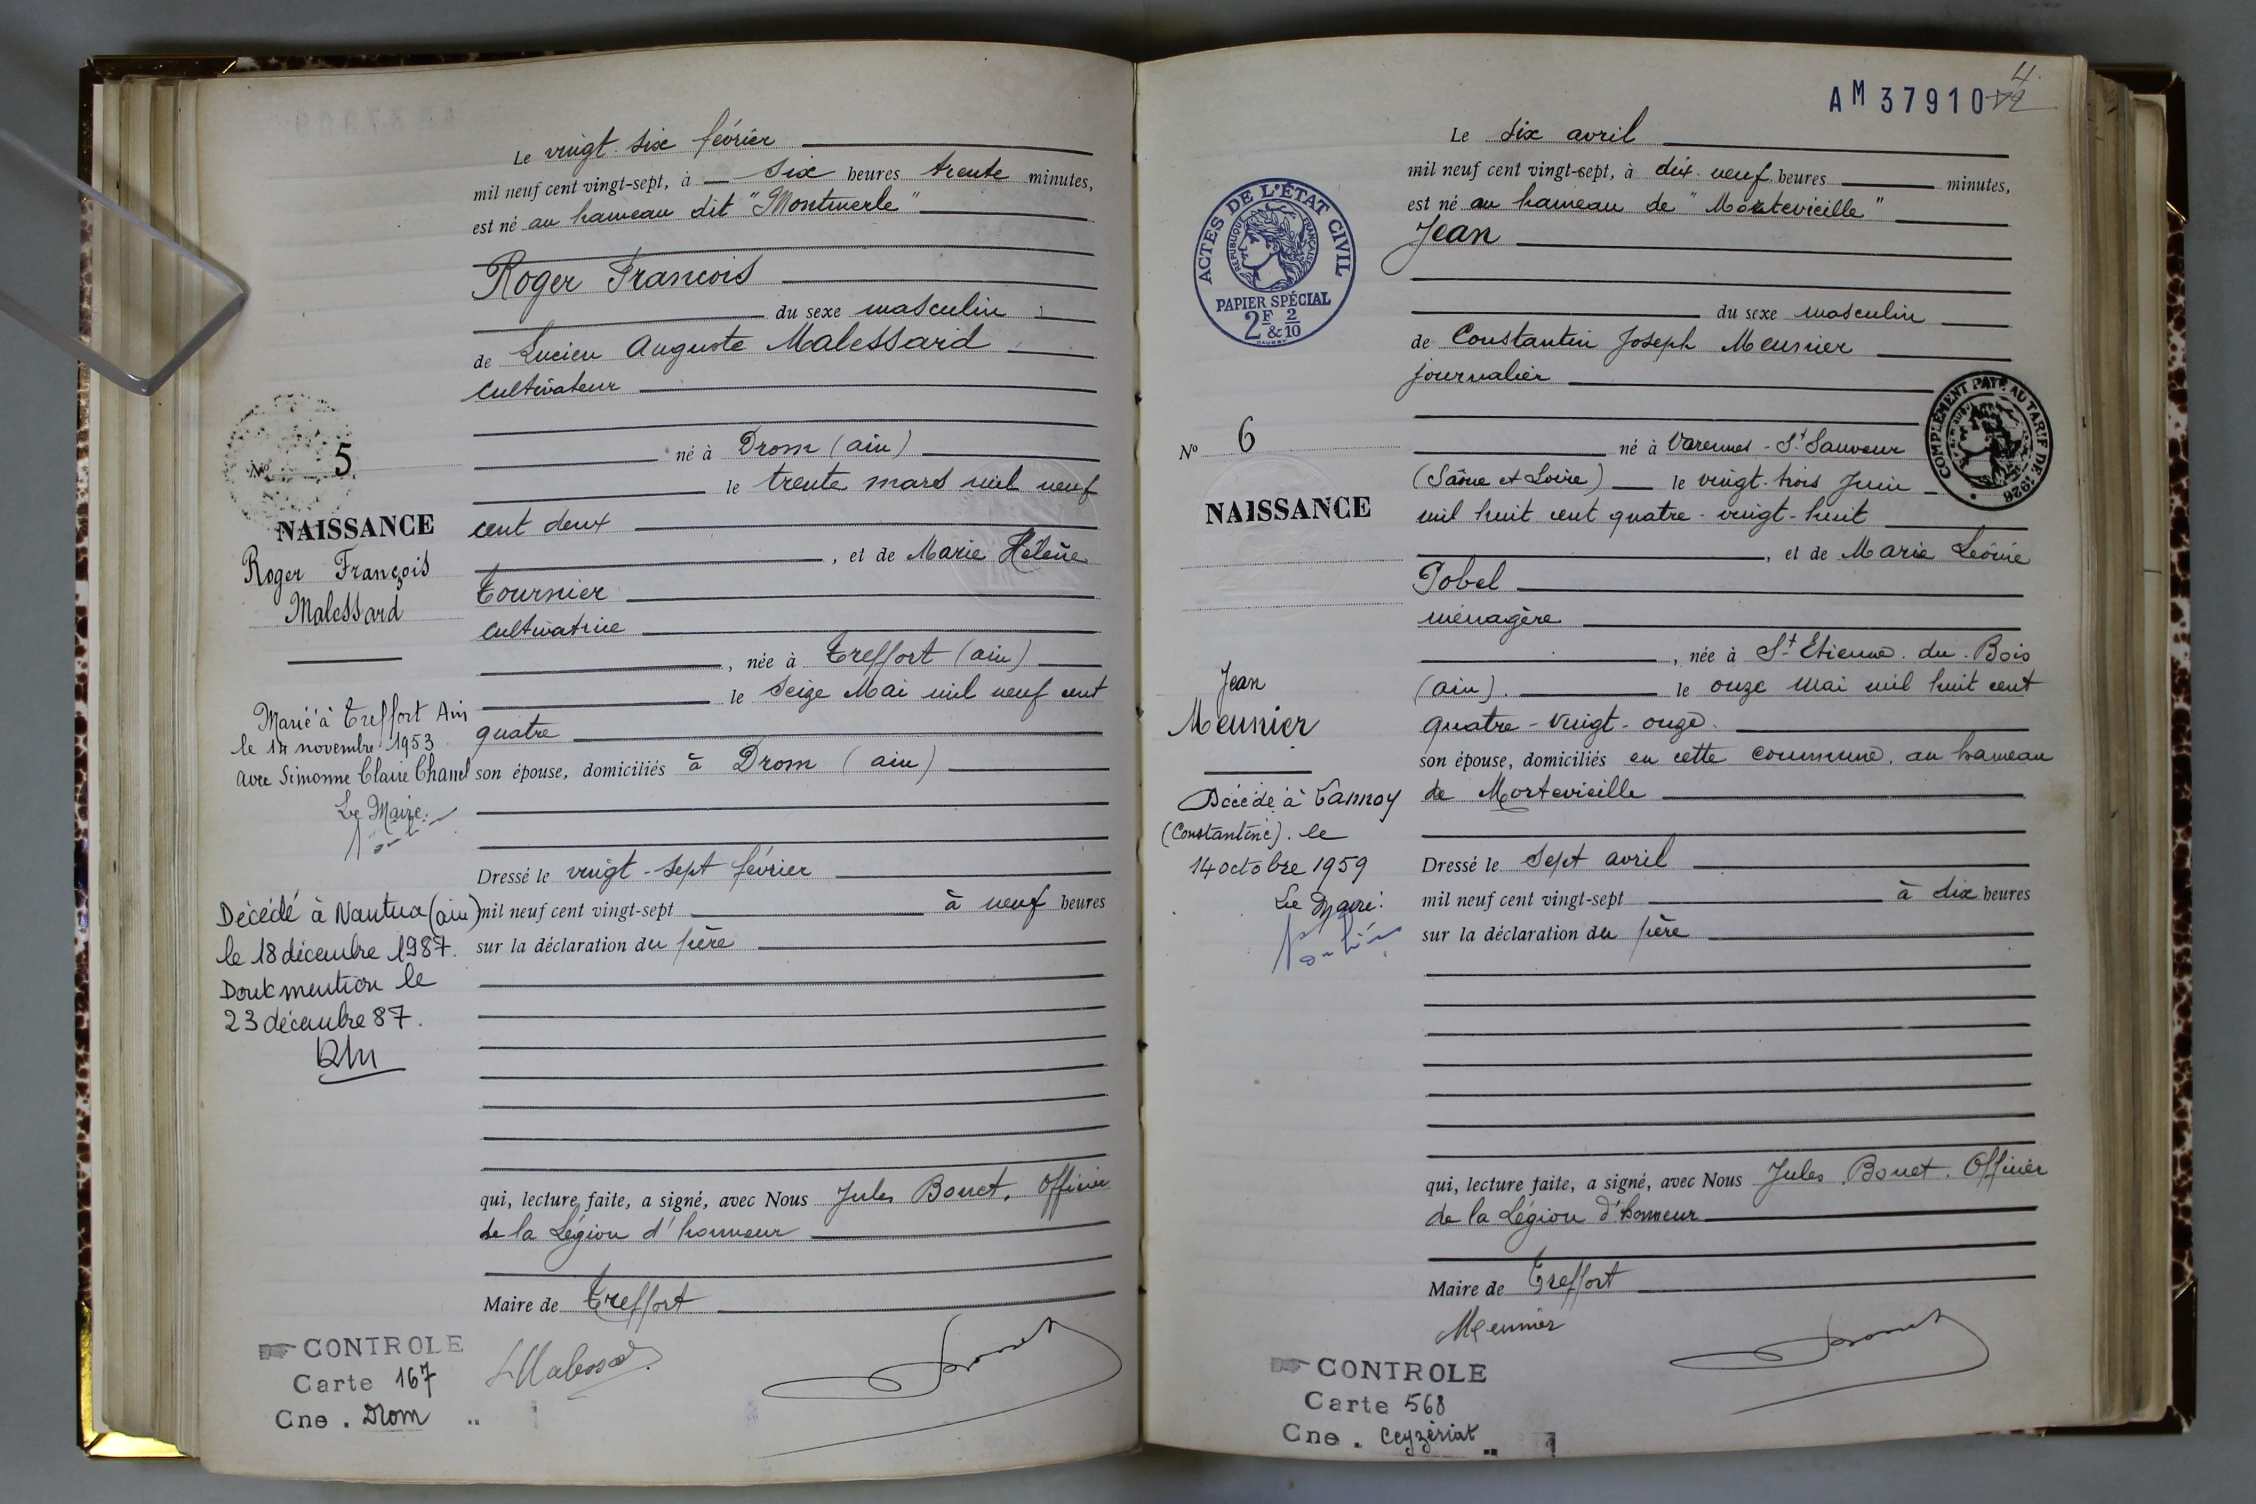 Le vingt six février
mil neuf cent vingt-sept, à six heures trente minutes,
est né au hameau dit "Montmerle"
Roger François
du sexe masculin
de Lucien Auguste Malessard
cultivateur
né à Drom (ain)
le trente mars mil neuf
cent deux
, et de Marie Hélène
Tournier
cultivatrice
, née à Treffort (ain)
le seize Mai mil neuf cent
quatre
son épouse, domiciliés à Drom (ain)
Dressé le vingt-sept février
mil neuf cent vingt-sept à neuf heures
sur la déclaration du père
qui, lecture faite, a signé, avec Nous Jules Bonnet, Officier
de la Légion d'honneur
Maire de Treffort
No 5
NAISSANCE
Roger François
Malessard
Marié à Treffort Ain
le 14 novembre 1953
avec Simonne Claire Chanel
Le Maire:
Décédé à Nantua (ain)
le 18 décembre 1987.
Dont mention le
23 décembre 87.
CONTROLE
Carte 167
Cne. Drom
AM 37910
4
Le six avril
mil neuf cent vingt-sept, à dix-neuf heures minutes,
est né au hameau de "Mortevieille"
Jean
du sexe masculin
de Constantin Joseph Meunier
journalier
né à Varennes-St Sauveur
(Saône et Loire) le vingt-trois Juin
mil huit cent quatre-vingt-huit
, et de Marie Léonie
Pobel
ménagère
, née à St Etienne-du-Bois
(ain). le onze mai mil huit cent
quatre-vingt-onze.
son épouse, domiciliés en cette commune, au hameau
de Mortevieille
Dressé le sept avril
mil neuf cent vingt-sept à dix heures
sur la déclaration du père
qui, lecture faite, a signé, avec Nous Jules Bonnet. Officier
de la Légion d'honneur
Maire de Treffort
Meunier
ACTES DE L'ÉTAT CIVIL
RÉPUBLIQUE FRANÇAISE
PAPIER SPÉCIAL
2F & 2/10
COMPLÉMENT PAYÉ AU TARIF DE 1926
No 6
NAISSANCE
Jean
Meunier
Décédé à Tannoy
(Constantine). le
14 octobre 1959
Le Maire:
CONTROLE
Carte 568
Cne. Ceyzériat